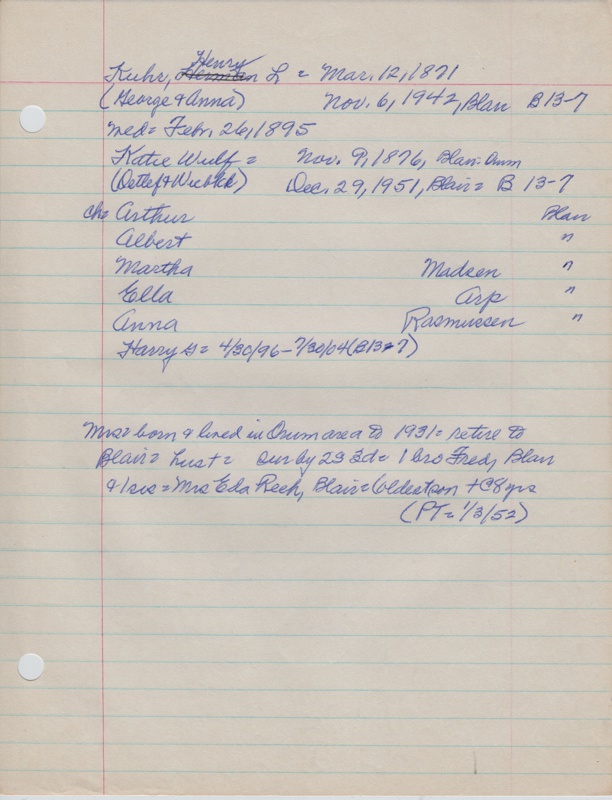 Henry
Kuhr, Herman L = Mar. 12, 1871
(George & Anna) Nov. 6, 1942, Blair B 13-7
med = Febr. 26, 1895
Katie Wulf = Nov. 9, 1876, Blair-Orum
(Detlef & Wiebke) Dec. 29, 1951, Blair = B 13-7
ch = Arthur Blair
Albert "
Martha Madsen "
Ella Arp "
Anna Rasmussen "
Harry G = 4/30/96-7/30/04 (B13-7)
Mrs = born & lived in Orum area to 1931 = retire to
Blair = Lust = sur by 2S 3d = 1 bro Fred, Blair
& 1 sis = Mrs Eda Rech, Blair = (oldest son + @ 8 yrs
(PT = 1/3/52)